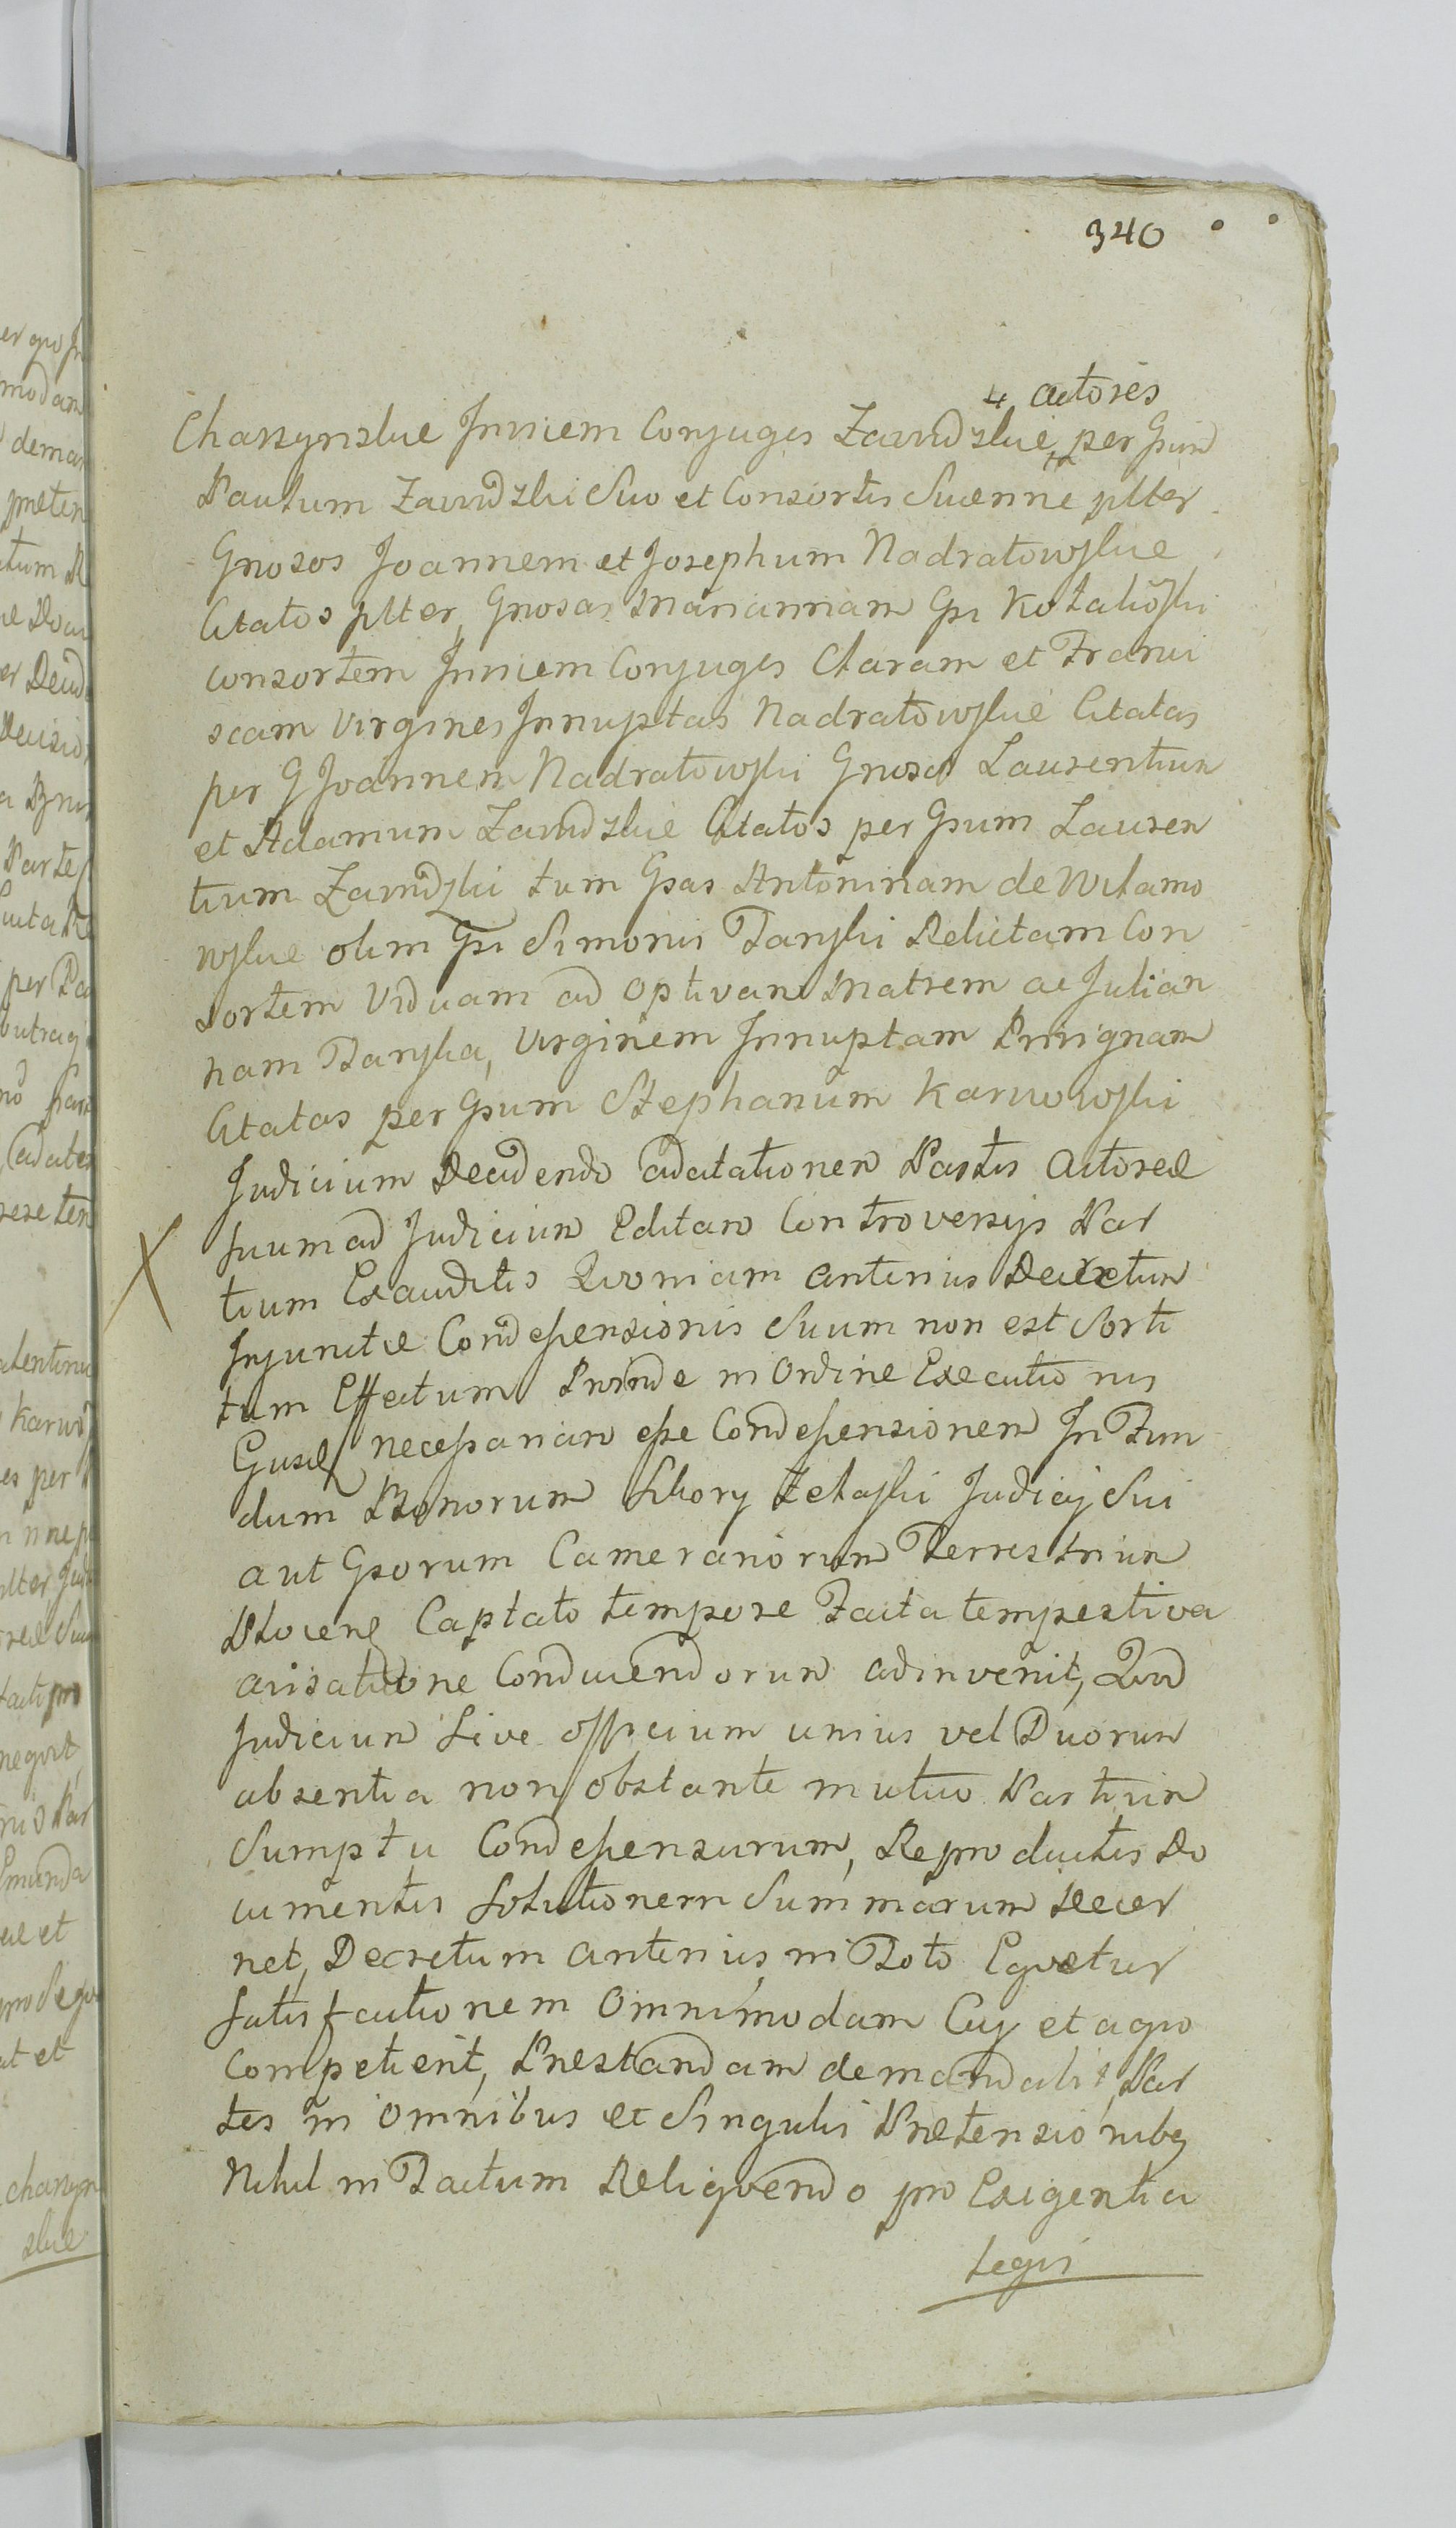 340
actores
Charzynskie Invicem Conjuges Zawidzkie per Gsum
Paulum Zawidzki Suo et Consortis Suae nne pltter
Gnosos Joannem et Josephum Nadratowskie
Citatos pltter, Gnosas Mariannam Gsi Kotakoski
consortem Invicem Conjuges Claram et Franci
scam Virgines Innuptas Nadratowskie Citatas
per G Joannem Nadratowski Gnosos Laurentium
et Adamum Zawidzkie Citatos per Gsum Lauren
tium Zawidzki tum Gsas Antoninam de Witamo
wskie olim Gsi Simonis Danski Relictam Con
sortem Viduam ad Optivam Matrem ac Julian
nam Danska, Virginem Innuptam Privignam
Citatas per Gsum Stephanum Karwowski
Judicium Decidendo adcitationem Partis Actoreae
suum ad Judicium Editam Controversijs Par
tium Exauditis Quoniam anterius Decretum
Injunctae Condescensionis Suum non est Sorti
tum Effectum Proinde in Ordine Executionis
Ejusd necessariam esse Condescensionem In Fun
dum Bonorum Sikory Judicij Sui
aut Gsorum Camerariorum Terrestrium
Plocens Captato tempore Facta tempestiva
avisatione Conducendorum adinvenit, Quod
Judicium Sive officium unius vel Duorum
absentia non obstante mutuo Partium
Sumptu Condescensurum, Reproductis Do
cumentis Solutionem Summarum Decer
net, Decretum anterius in Toto Exequetur
Satisfactionem Omnimodam Cuj et a quo
Competierit, Praestandam demandabit, Par
tes in Omnibus et Singulis Praetensionibq
Nihil in Factum Relinquendo pro Exigentia
Legis